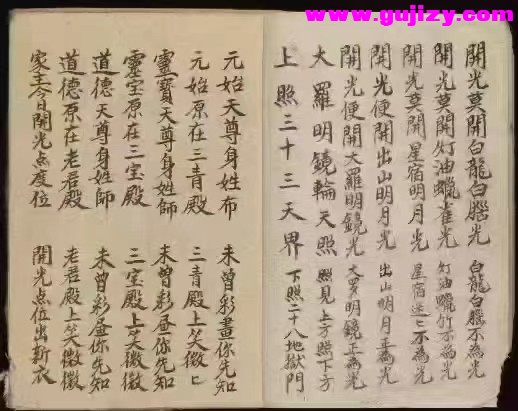 www.gujizy.com
開光莫開白龍白光 白龍白不為光
開光莫開灯油蠟雀光 灯油蠟竹不為光
開光莫開星宿明月光 星宿迷ミ不為光
開光便開出山明月光 出山明月正為光
開光便開大羅明鏡光 大罗明鏡正為光
大羅明鏡輪天照 照見上方照下方
上照三十三天界 下照二十八地獄門
元始天尊身姓布 未曾彩畫你先知
元始原在三青殿 三青殿上笑微ヒ
靈寳天尊身姓師 未曾彩昼你先知
霊宝原在三宝殿 三宝殿上笑微微
道德天尊身姓師 未曾彩昼你先知
道德原在老君殿 老君殿上笑微微
家主今日開光点度位 開光点位出新衣